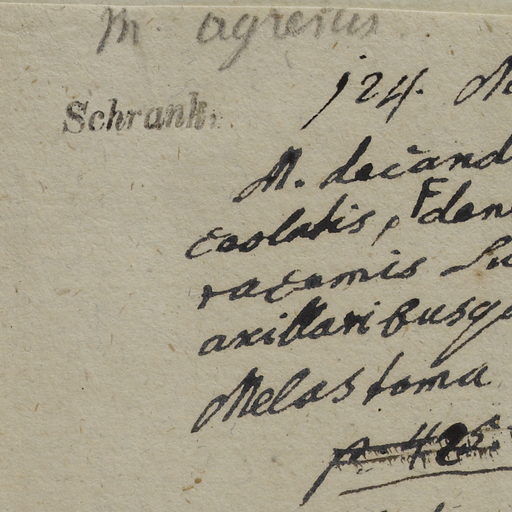 M. agrestis
Schrank.
124. M
M. decand
ceolatis, Fden
racemis Su
axillaribusq
Melastoma
p. 425.